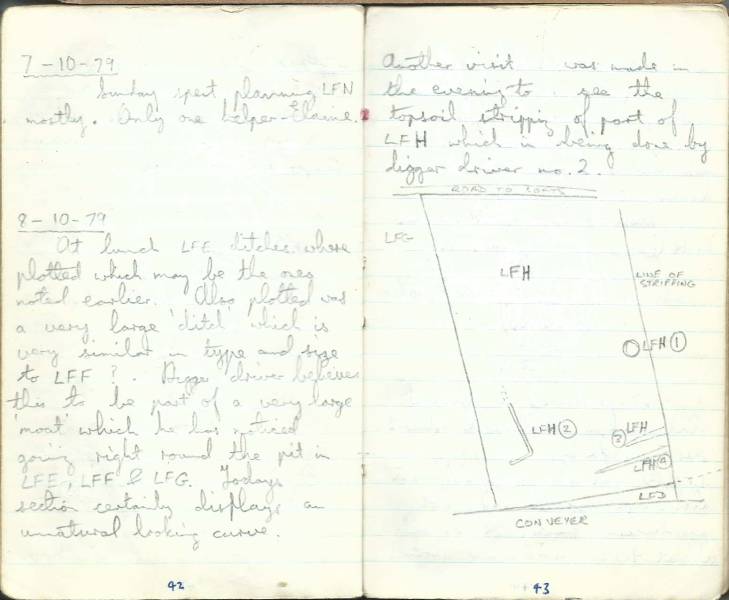 7-10-79
Sunday spent planning LFN
mostly. Only one helper-Elaine.
8-10-79
At lunch LFE ditches where
plotted which may be the ones
noted earlier. Also plotted was
a very large 'ditch' which is
very similar in type and size
to LFF ?. Digger driver believes
this to be part of a very large
'moat' which he has noticed
going right round the pit in
LFE, LFF & LFG. Todays
section certainly displays an
unnatural looking curve.
42
Another visit was made in
the evening to see the
topsoil stripping of part of
LFH which is being done by
digger driver no. 2.
ROAD TO
LFG
LFH
LINE OF
STRIPPING
LFH 1
LFH 2
3 LFH
LFH 4
LFJ
CONVEYER
43